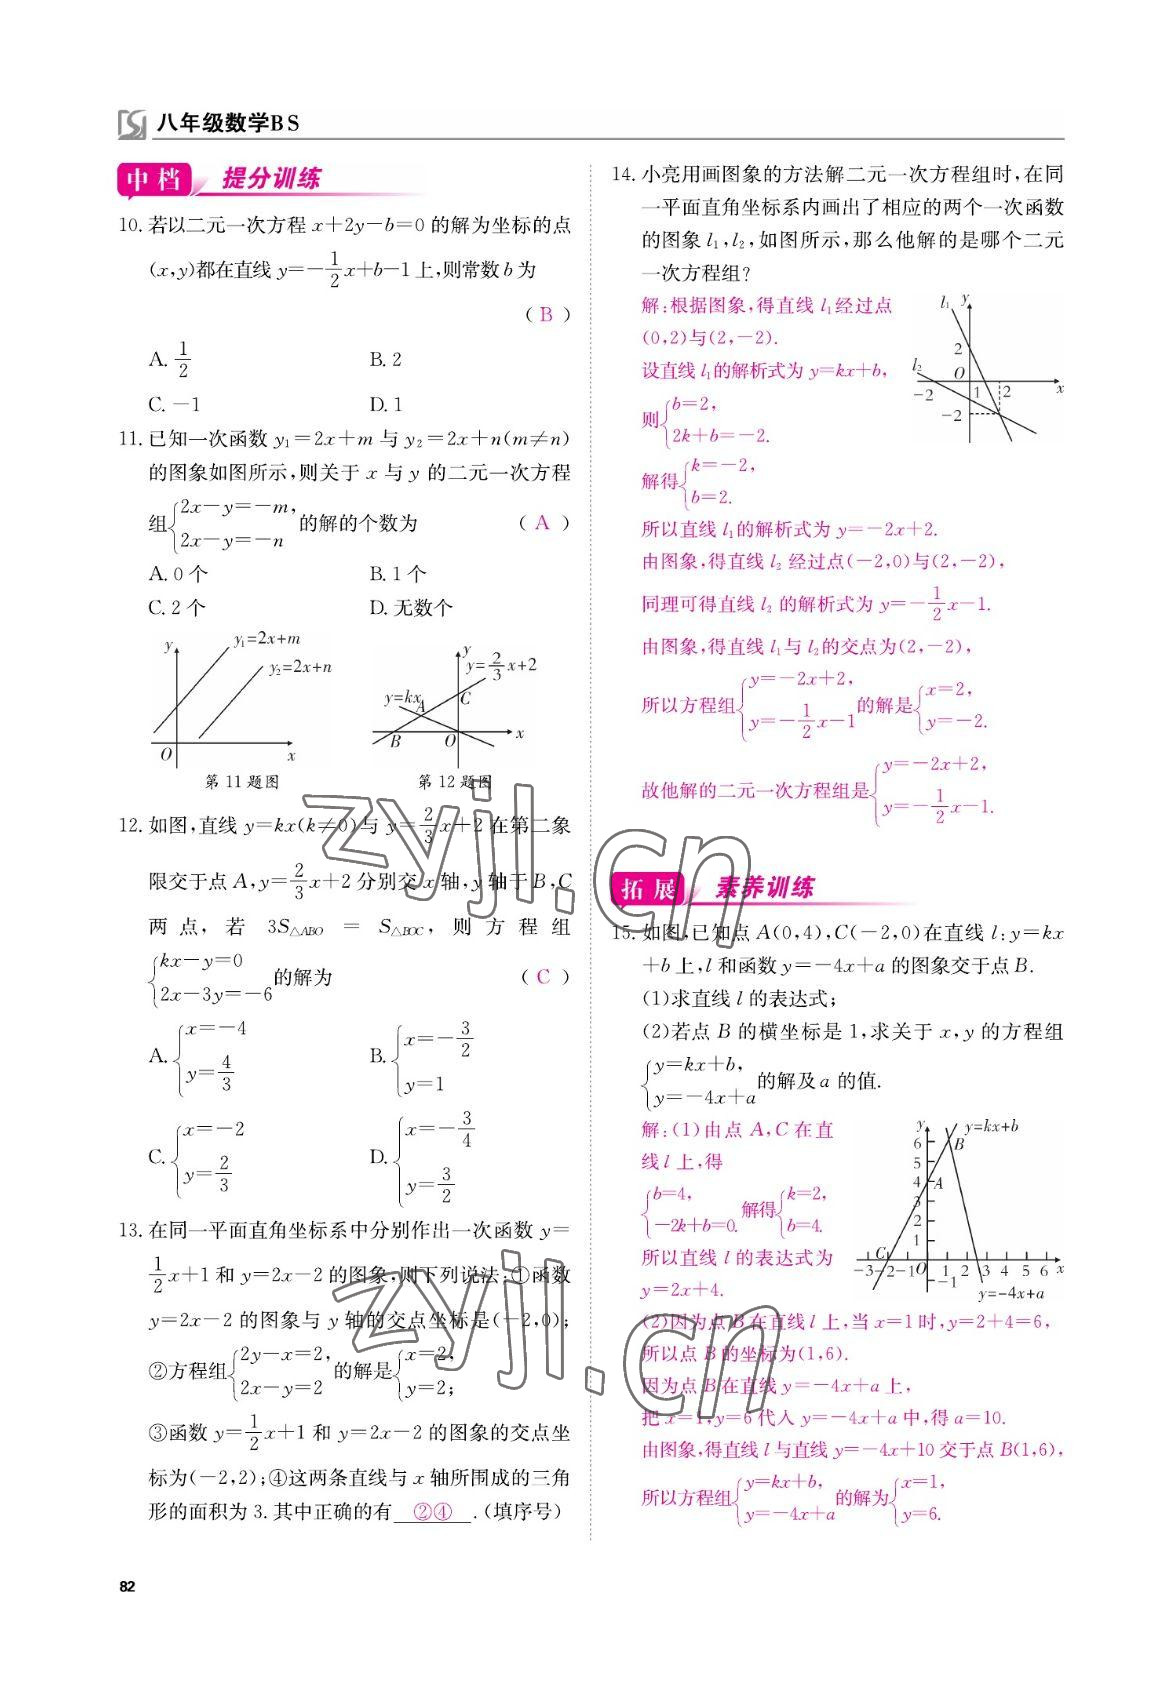 八年级数学BS
中档 提分训练
10. 若以二元一次方程 x+2y-b=0 的解为坐标的点
(x,y)都在直线 y=-\frac{1}{2}x+b-1 上,则常数 b 为
( B )
A. \frac{1}{2} B. 2
C. -1 D. 1
11. 已知一次函数 y₁=2x+m 与 y₂=2x+n(m≠n)
的图象如图所示,则关于 x 与 y 的二元一次方程
组{2x-y=-m, 2x-y=-n 的解的个数为 ( A )
A. 0 个 B. 1 个
C. 2 个 D. 无数个
y y₁=2x+m y₂=2x+n O x
y y=\frac{2}{3}x+2 y=kx A C B O x
第 11 题图 第 12 题图
12. 如图,直线 y=kx(k≠0)与 y=\frac{2}{3}x+2 在第二象
限交于点 A,y=\frac{2}{3}x+2 分别交 x 轴,y 轴于 B,C
两点,若 3S△ABO = S△BOC,则方程组
{kx-y=0 2x-3y=-6 的解为 ( C )
A. {x=-4 y=\frac{4}{3} B. {x=-\frac{3}{2} y=1
C. {x=-2 y=\frac{2}{3} D. {x=-\frac{3}{4} y=\frac{3}{2}
13. 在同一平面直角坐标系中分别作出一次函数 y=
\frac{1}{2}x+1 和 y=2x-2 的图象,则下列说法:①函数
y=2x-2 的图象与 y 轴的交点坐标是(-2,0);
②方程组{2y-x=2, 2x-y=2 的解是{x=2, y=2;
③函数 y=\frac{1}{2}x+1 和 y=2x-2 的图象的交点坐
标为(-2,2);④这两条直线与 x 轴所围成的三角
形的面积为 3. 其中正确的有 ②④ .(填序号)
14. 小亮用画图象的方法解二元一次方程组时,在同
一平面直角坐标系内画出了相应的两个一次函数
的图象 l₁,l₂,如图所示,那么他解的是哪个二元
一次方程组?
解:根据图象,得直线 l₁经过点
(0,2)与(2,-2).
设直线 l₁的解析式为 y=kx+b,
则{b=2, 2k+b=-2.
解得{k=-2, b=2.
l₁ y 2 l₂ O -2 1 2 x -2
所以直线 l₁的解析式为 y=-2x+2.
由图象,得直线 l₂ 经过点(-2,0)与(2,-2),
同理可得直线 l₂ 的解析式为 y=-\frac{1}{2}x-1.
由图象,得直线 l₁与 l₂的交点为(2,-2),
所以方程组{y=-2x+2, y=-\frac{1}{2}x-1 的解是{x=2, y=-2.
故他解的二元一次方程组是{y=-2x+2, y=-\frac{1}{2}x-1.
拓展 素养训练
15. 如图,已知点 A(0,4),C(-2,0)在直线 l:y=kx
+b 上,l 和函数 y=-4x+a 的图象交于点 B.
(1)求直线 l 的表达式;
(2)若点 B 的横坐标是 1,求关于 x,y 的方程组
{y=kx+b, y=-4x+a 的解及 a 的值.
解:(1)由点 A,C 在直
线 l 上,得
{b=4, -2k+b=0. 解得{k=2, b=4.
所以直线 l 的表达式为
y=2x+4.
y y=kx+b B 6 5 4 A 3 2 1 C -3-2-1O 1 2 3 4 5 6 x -1 y=-4x+a
(2)因为点 B 在直线 l 上,当 x=1 时,y=2+4=6,
所以点 B 的坐标为(1,6).
因为点 B 在直线 y=-4x+a 上,
把 x=1,y=6 代入 y=-4x+a 中,得 a=10.
由图象,得直线 l 与直线 y=-4x+10 交于点 B(1,6),
所以方程组{y=kx+b, y=-4x+a 的解为{x=1, y=6.
82
zyjl.cn
zyjl.cn